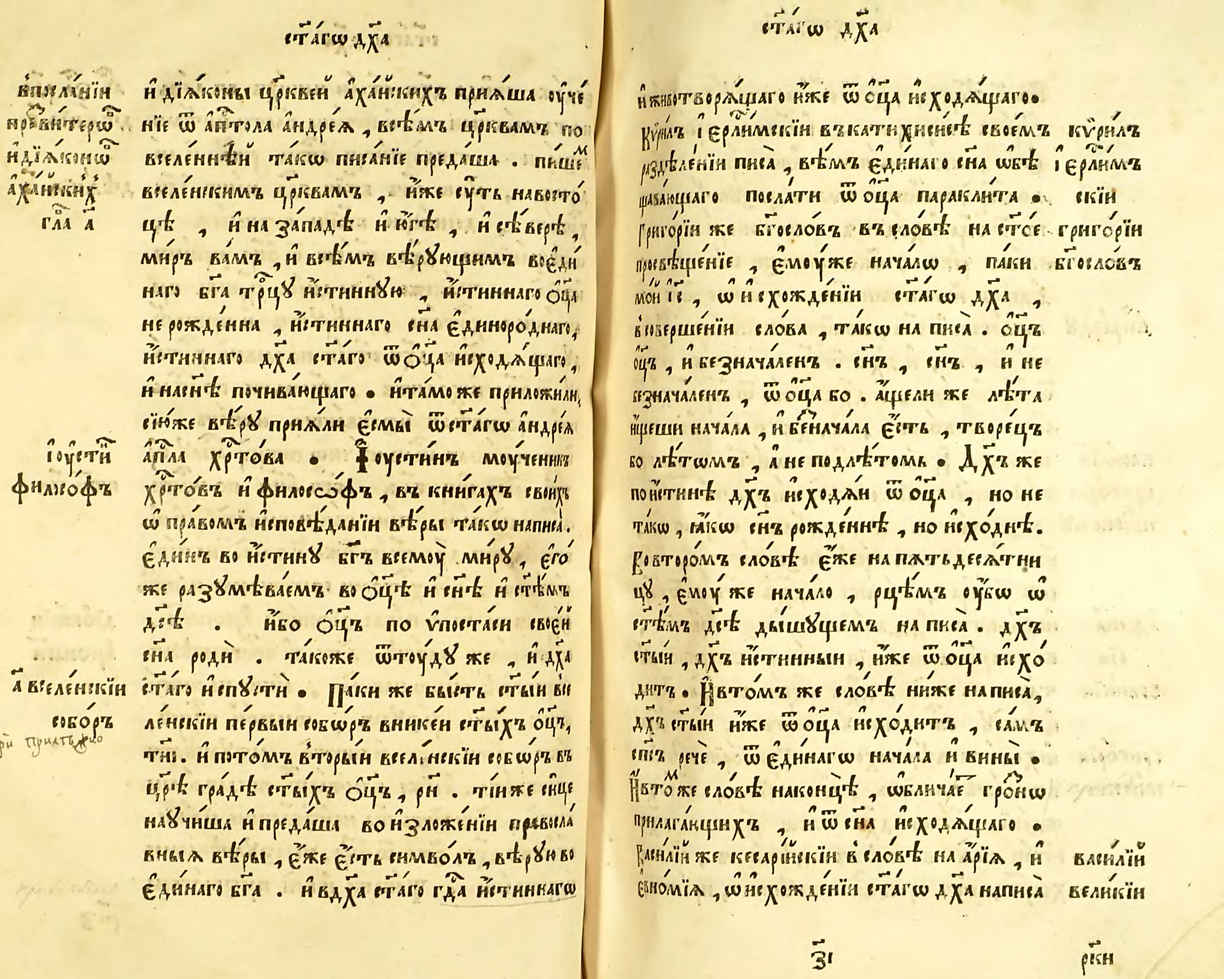 ст҃а́гѡ дх҃а
в̾посла́нїи
презви́терѡв̾
и҆дїа́конѡв̾
а҆ха́йскихъ
гла̀ а҃
і҆ꙋсти́н
фило́соѳъ
а҃ вселе́нскїи
собо́ръ
и҆ дїѧ́коны цр҃квей а҆ха́йскихъ прїѧ́ша оу҆че́
нїе ѿ а҆пⷭ҇тола а҆ндре́ѧ , всѣ́мъ цр҃квамъ по
вселе́ннѣй та́кѡ писа́нїе преда́ша . пи́шемъ
вселе́нскимъ цр҃квамъ , и҆́же сꙋ́ть на восто́
цѣ , и҆ на за́падѣ и҆ ю҆́гѣ , и҆ сѣ́верѣ ,
ми́ръ ва́мъ , и҆ всѣ́мъ вѣ́рꙋющимъ во є҆ди́
наго бг҃а трⷪ҇цꙋ и҆́стиннꙋю , и҆́стиннаго ѻ҆ц҃а
не рожде́нна , и҆́стиннаго сн҃а є҆диноро́днаго ,
и҆́стиннаго дх҃а ст҃а́го ѿ ѻ҆ц҃а и҆сходѧ́щаго ,
и҆ на сн҃ѣ почива́ющаго . и҆ та́мо же приложи́ли ,
сїю́же вѣ́рꙋ прїѧ́ли є҆смы̀ ѿ ст҃а́гѡ а҆ндре́ѧ
а҆пⷭ҇ла хрⷭ҇то́ва . І҆оусти́нъ моу́ченикъ
хрⷭ҇то́въ и҆ фило́соѳъ , въ кни́гахъ свои́хъ
ѡ҆ пра́вомъ и҆сповѣ́данїи вѣ́ры та́кѡ написа̀ .
є҆ди́нъ во и҆́стинꙋ бг҃ъ всемоу̀ ми́рꙋ , є҆го́
же разꙋмѣва́емъ во ѻ҆ц҃ѣ и҆ сн҃ѣ и҆ ст҃ѣ́мъ
дс҃ѣ . и҆́бо ѻ҆ц҃ъ по ѵ҆поста́си свое́й
сн҃а родѝ . та́коже ѿтоу́дꙋ же , и҆ дх҃а
ст҃а́го и҆спꙋстѝ . Па́ки же бы́сть ст҃ы́и все
ле́нскїи пе́рвыи собѡ́ръ в̾нике́и ст҃ы́хъ ѻ҆ц҃ъ ,
тиі . и҆ пото́мъ вторы́и вселе́нскїи собѡ́ръ въ
цр҃ѣ гра́дѣ ст҃ы́хъ ѻ҆ц҃ъ , рн҃ . ті́и же си́це
наꙋчи́ша и҆ преда́ша во и҆зложе́нїи правосла́
вныѧ вѣ́ры , є҆́же є҆́сть симво́лъ , вѣ́рꙋю во
є҆ди́наго бг҃а . и҆ в дх҃а ст҃а́го гдⷭ҇а и҆́стиннагѡ
ст҃а́гѡ дх҃а
и҆ животворѧ́щаго и҆́же ѿ ѻ҆ц҃а и҆сходѧ́щаго .
Кѷри́лъ і҆ерⷭ҇ли́мскїи въ катихи́сисѣ свое́мъ
раздѣле́нїи писа̀ , вѣ́мъ є҆ди́наго сн҃а ѡ҆бѣ
щава́ющаго посла́ти ѿ ѻ҆ц҃а паракли́та .
Григо́рїи же бг҃осло́въ въ сло́вѣ на ст҃о́е
просвѣще́нїе , є҆моу́же нача́лѡ , па́ки
мо́й і҆с҃ , ѡ҆ и҆схожде́нїи ст҃а́гѡ дх҃а ,
в̾соверше́нїи сло́ва , та́кѡ написа̀ . ѻ҆ц҃ъ
ѻ҆ц҃ъ , и҆ безнача́ленъ . сн҃ъ , сн҃ъ , и҆ не
безнача́ленъ , ѿ ѻ҆ц҃а бо . а҆́щели же лѣ́та
и҆́щеши нача́ла , и҆ безнача́ла є҆́сть , творе́цъ
бо лѣ́тѡмъ , а҆ не под лѣ́томъ . Дх҃ъ же
по и҆́стинѣ дх҃ъ и҆сходѧ́и ѿ ѻ҆ц҃а , но не
та́кѡ , ꙗ҆́кѡ сн҃ъ рожде́ннѣ , но и҆схо́днѣ .
Во второ́мъ сло́вѣ є҆́же на пѧтьдесѧ́тни
цꙋ , є҆моу́ же нача́ло , рце́мъ оу҆́бѡ ѡ҆
ст҃ѣ́мъ дс҃ѣ ды́шꙋщемъ написа̀ . дх҃ъ
ст҃ы́и , дх҃ъ и҆́стинныи , и҆́же ѿ ѻ҆ц҃а и҆схо́
дитъ . И҆ в то́мъ же сло́вѣ ни́же написа̀ ,
дх҃ъ ст҃ы́и и҆́же ѿ ѻ҆ц҃а и҆схо́дитъ , са́мъ
сп҃съ речѐ , ѿ є҆ди́нагѡ нача́ла и҆ вины̀ .
И҆ в то́мже сло́вѣ наконцѣ̀ , ѡ҆блича́етъ гро́ꙁнѡ
прилага́ющихъ , и҆ ѿ сн҃а и҆сходѧ́щаго .
Васи́лїй же кесарі́йскїи в̾ сло́вѣ на а҆́рїѧ , и҆
є҆ѵно́мїѧ , ѡ҆ и҆схожде́нїи ст҃а́гѡ дх҃а написа̀
кѷри́лъ
і҆ерⷭ҇ли́мъ
скїи
григо́рїи
бг҃осло́въ
васи́лїй
вели́кїи
з҃і
рк҃и